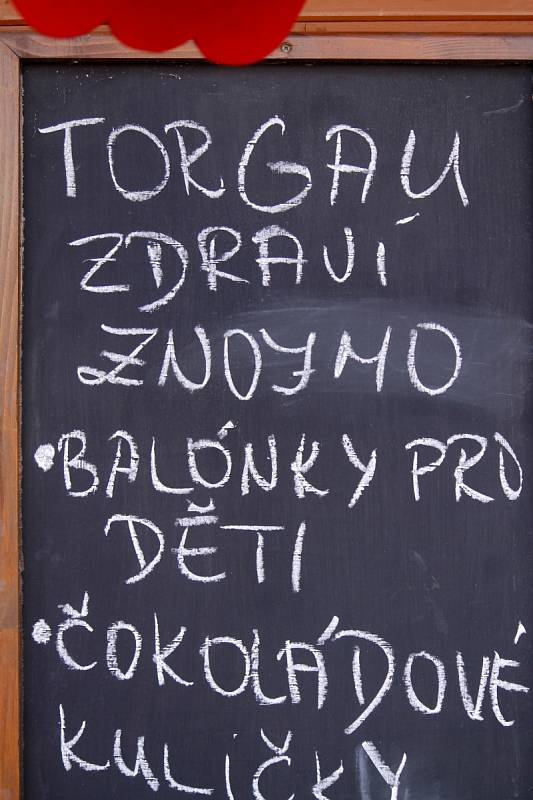 TORGAU
ZDRAVÍ
ZNOJMO
• BALÓNKY PRO
DĚTI
• ČOKOLÁDOVÉ
KULIČKY